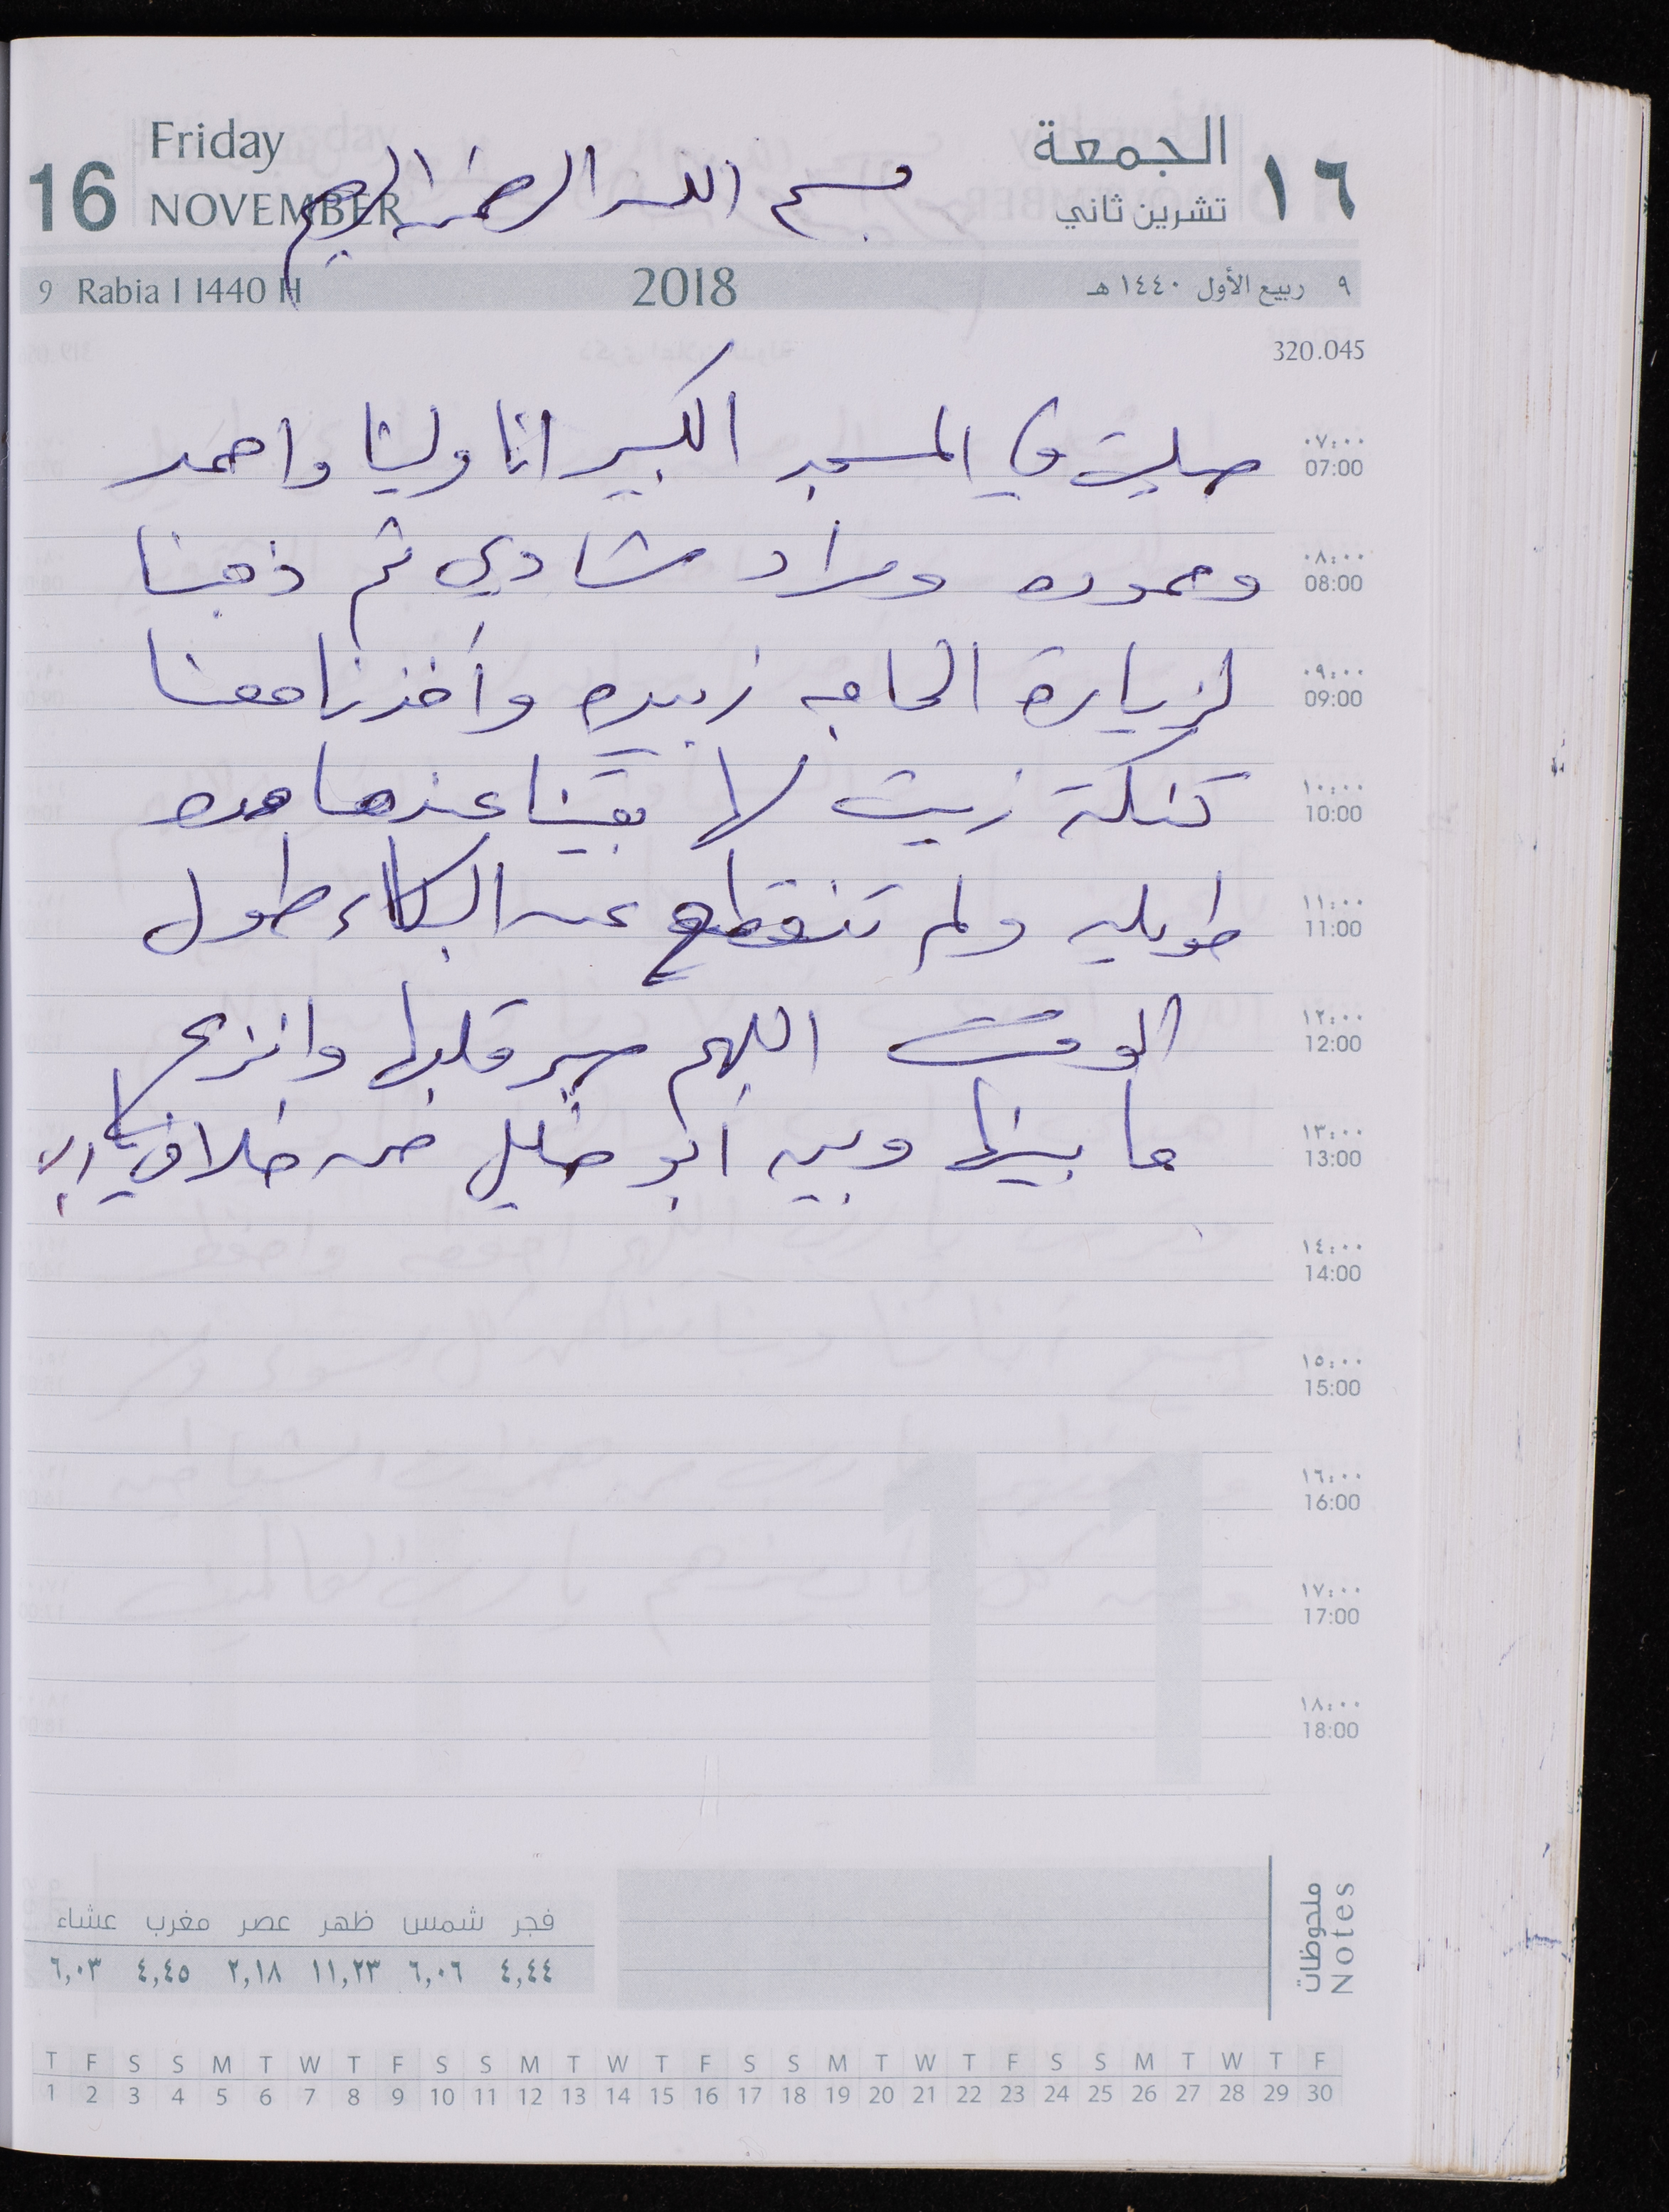 Friday الجمعة
16 NOVEMBER تشرين ثاني ١٦
بسم الله الرحمن الرحيم
9 Rabia I 1440 H 2018 ٩ ربيع الأول ١٤٤٠ هـ
320.045
صليت في المسجد الكبير انا ولينا واحمد
٠٧:٠٠
07:00
وحموده ومراد شادي ثم ذهبنا
٠٨:٠٠
08:00
لزيارة الحاجه زبيده وأخذنا معنا
٠٩:٠٠
09:00
تنكة زيت لها بقينا عندها مده
١٠:٠٠
10:00
طويله ولم تنقطع عن البكاء طول
١١:٠٠
11:00
الوقت اللهم صبر قلبها وانزع
١٢:٠٠
12:00
ما بينها وبين أبو خليل من خلاف يا رب
١٣:٠٠
13:00
١٤:٠٠
14:00
١٥:٠٠
15:00
١٦:٠٠
16:00
١٧:٠٠
17:00
١٨:٠٠
18:00
11
ملحوظات
Notes
فجر شمس ظهر عصر مغرب عشاء
٤,٤٤ ٦,٠٦ ١١,٢٣ ٢,١٨ ٤,٤٥ ٦,٠٣
T F S S M T W T F S S M T W T F S S M T W T F S S M T W T F
1 2 3 4 5 6 7 8 9 10 11 12 13 14 15 16 17 18 19 20 21 22 23 24 25 26 27 28 29 30